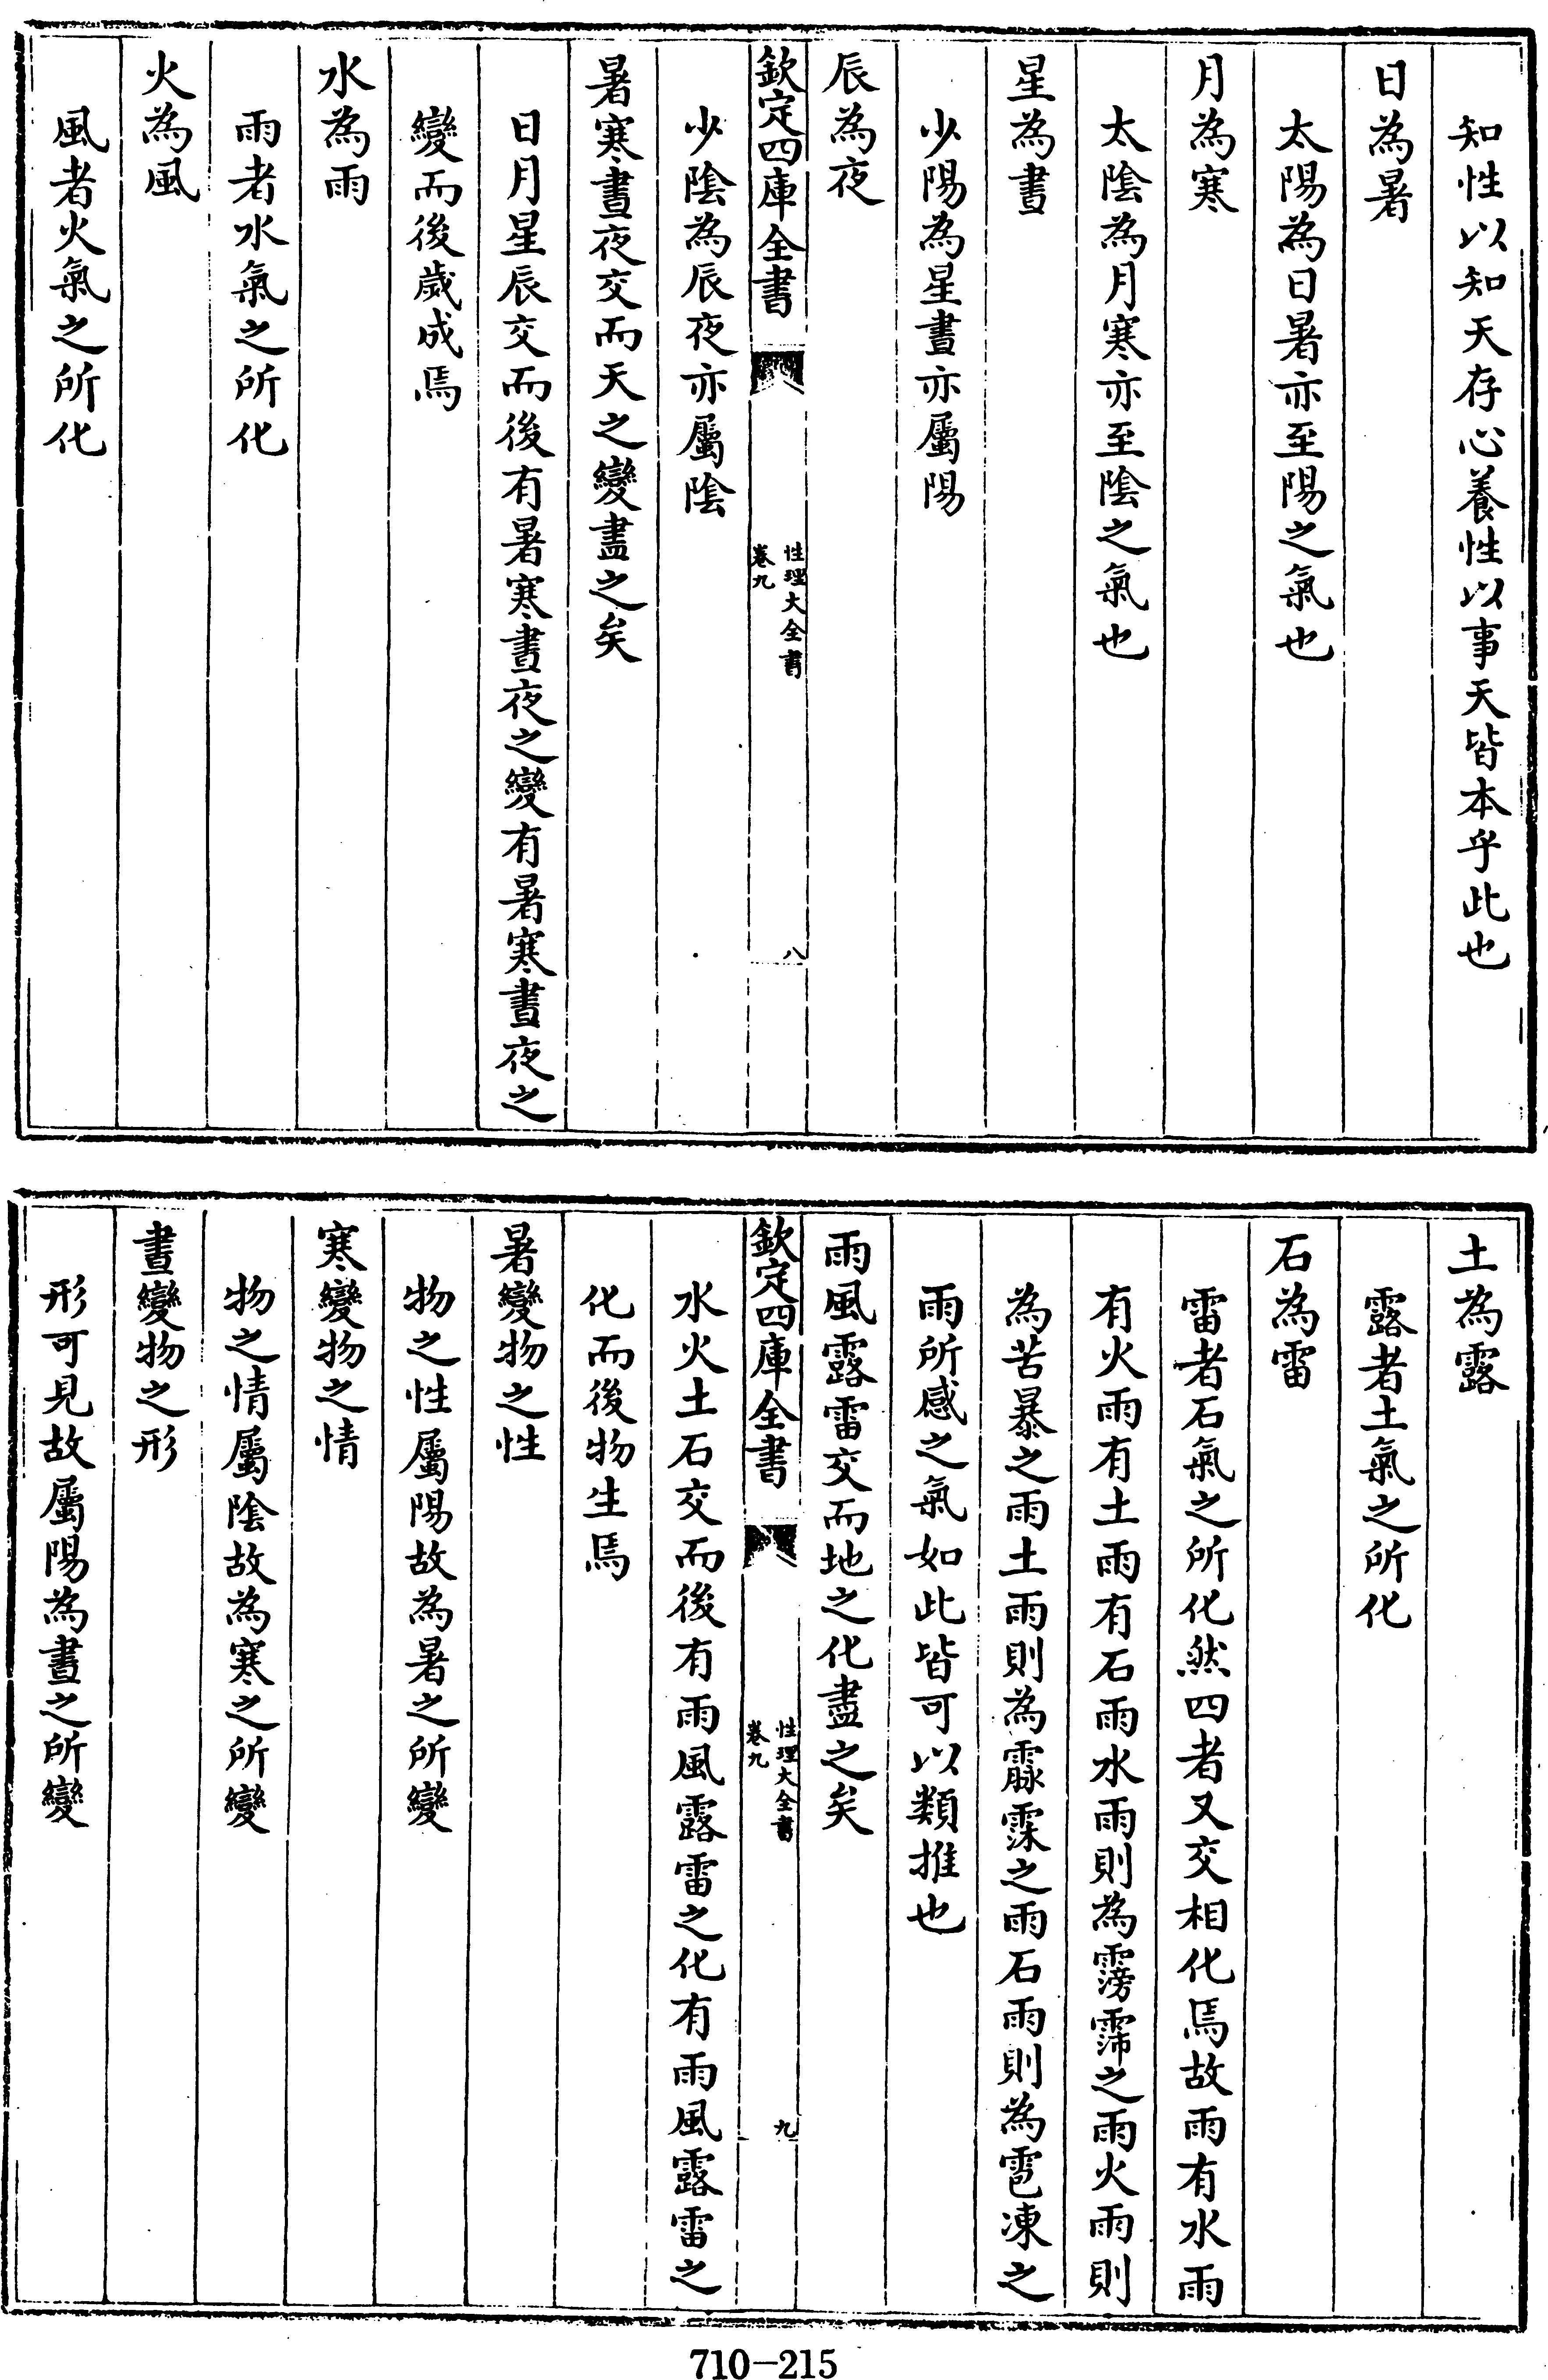 知性以知天存心養性以事天皆本乎此也
日為暑
太陽為日暑亦至陽之氣也
月為寒
太陰為月寒亦至陰之氣也
星為晝
少陽為星晝亦屬陽
辰為夜
欽定四庫全書
性理大全書
卷九
八
少陰為辰夜亦屬陰
暑寒晝夜交而天之變盡之矣
日月星辰交而後有暑寒晝夜之變有暑寒晝夜之
變而後歲成焉
水為雨
雨者水氣之所化
火為風
風者火氣之所化
土為露
露者土氣之所化
石為雷
雷者石氣之所化然四者又交相化焉故雨有水雨
有火雨有土雨有石雨水雨則為霶霈之雨火雨則
為苦暴之雨土雨則為霡霂之雨石雨則為雹凍之
雨所感之氣如此皆可以類推也
雨風露雷交而地之化盡之矣
欽定四庫全書
性理大全書
卷九
九
水火土石交而後有雨風露雷之化有雨風露雷之
化而後物生焉
暑變物之性
物之性屬陽故為暑之所變
寒變物之情
物之情屬陰故為寒之所變
晝變物之形
形可見故屬陽為晝之所變
710-215